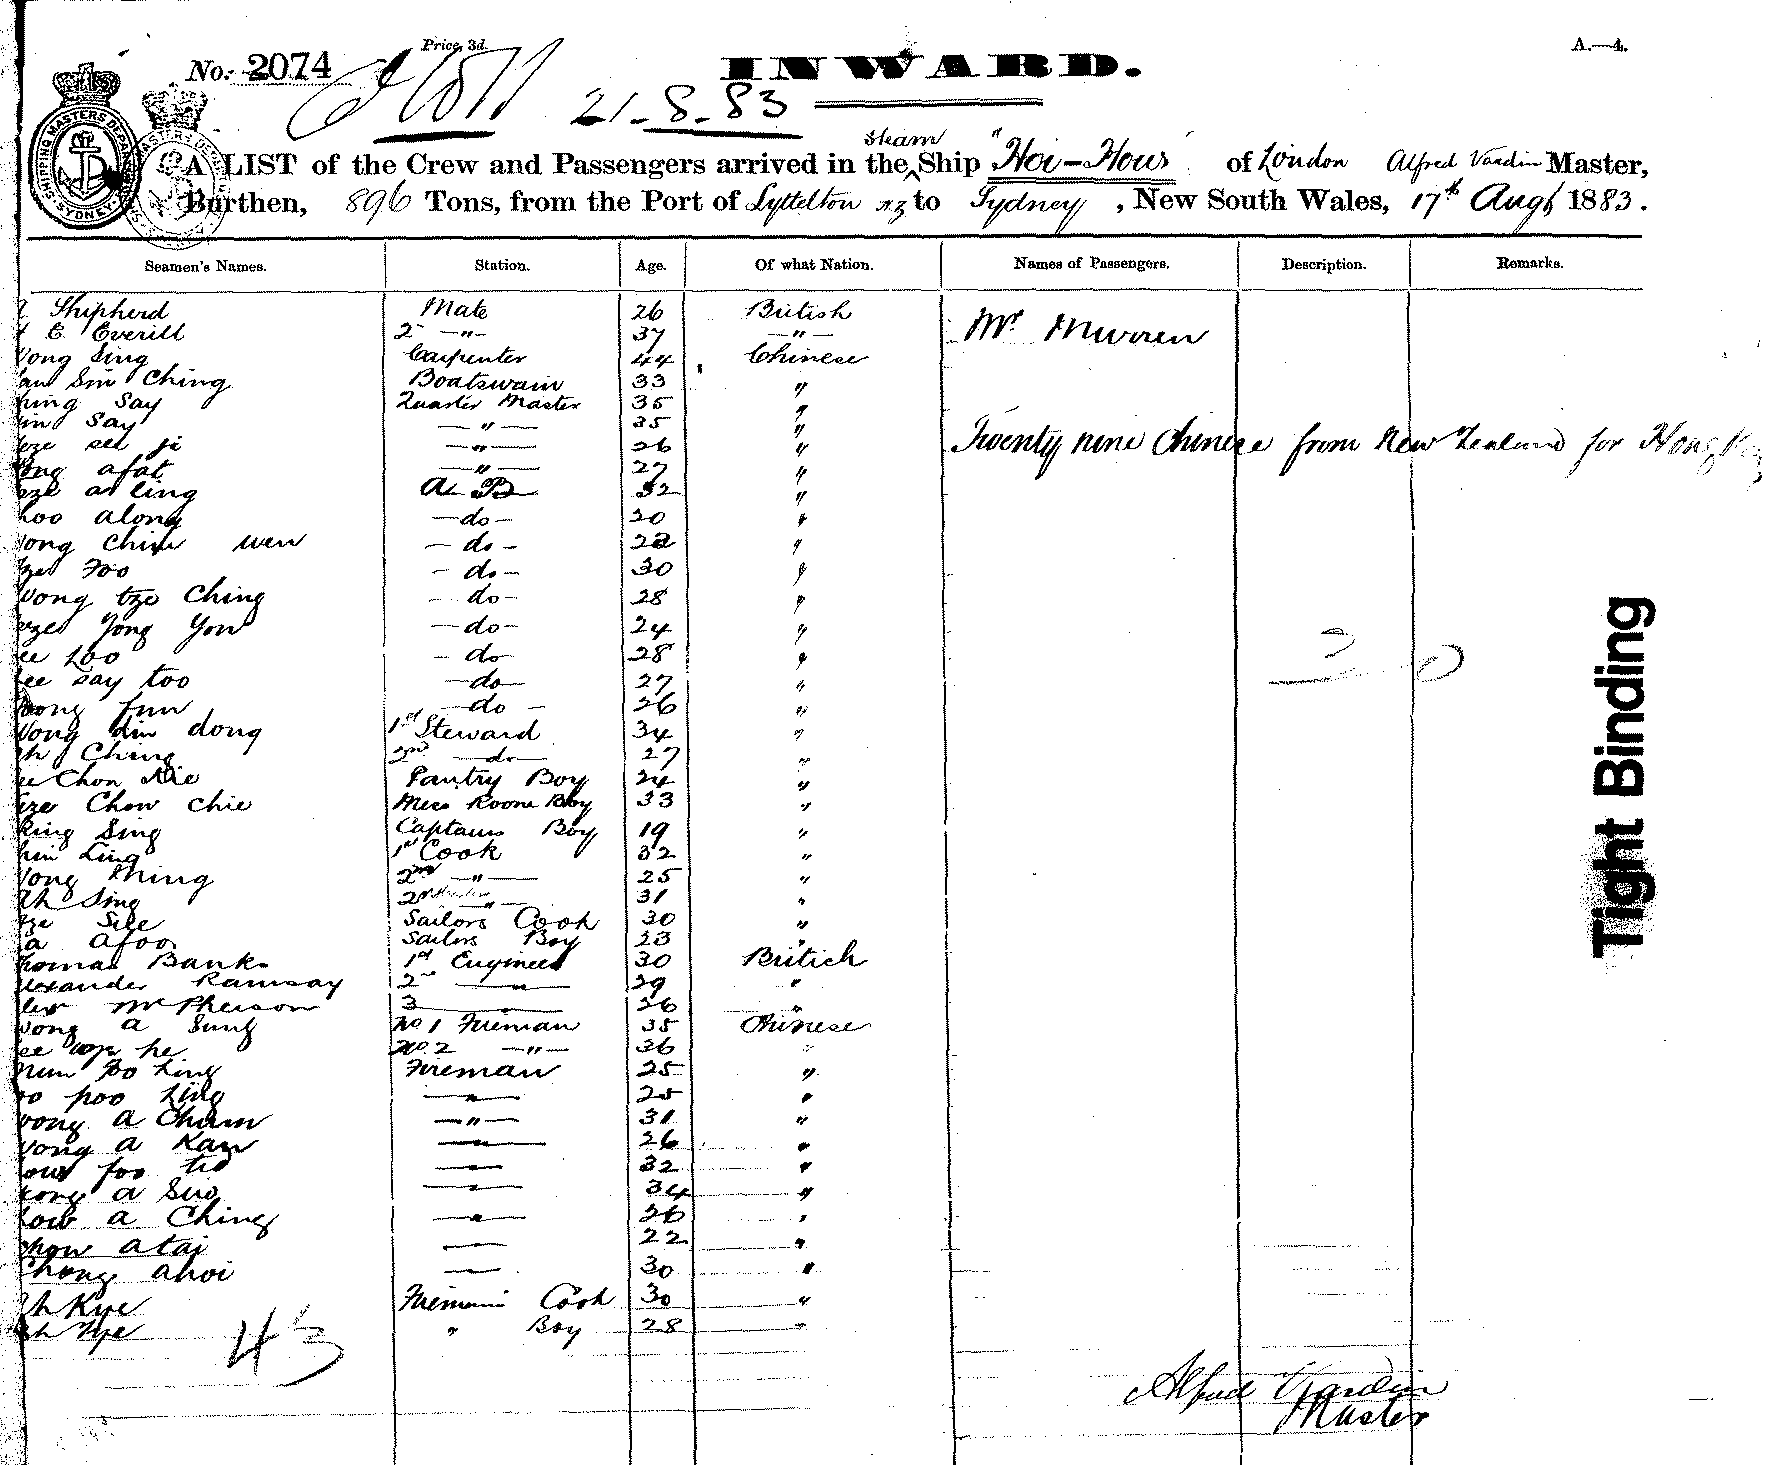 Price, 3d.
A.—4.
No. 2074
INWARD.
21.8.83
SHIPPING MASTERS DEP
SYDNEY
steam
A LIST of the Crew and Passengers arrived in the Ship "Hoi-How" of London Alfred Vardin Master,
Burthen, 896 Tons, from the Port of Lyttelton NZ to Sydney, New South Wales, 17th Augt 1883.
Seamen's Names. Station. Age. Of what Nation. Names of Passengers. Description. Remarks.
Shipherd Mate 26 British
E Everill 2 —"— 37 —"— Mr Murren
ong Sing Carpenter 44 Chinese
Sin Ching Boatswain 33 "
ing Say Quarter Master 35 "
in Say —"— 35 "
ze see ji —"— 26 " Twenty nine Chinese from New Zealand for Hong K
ong afat —"— 27 "
ze a ling A B 32 "
hoo along —do— 20 "
ong Chin wen —do— 22 "
ze Foo —do— 30 "
ong tze Ching —do— 28 "
ze Yong Yow —do— 24 "
ee Loo —do— 28 " 30
ee say too —do— 27 "
ong fun —do— 26 "
ong din dong 1st Steward 34 "
h Ching 2nd —do— 27 "
ee Chon Pantry Boy 24 "
ze Chow Chie Mess Room Boy 33 "
king Sing Captains Boy 19 "
hin Ling 1st Cook 32 "
ong Ming 2nd —"— 25 "
Ah Sing 2nd —"— 31 "
ze See Sailors Cook 30 "
a afoo Sailors Boy 23 "
homas Banks 1st Engineer 30 British
lexander Ramsay 2nd —"— 29 "
lex McPherson 3 — 26 "
ong a Sung No 1 Fireman 35 Chinese
ee he No. 2 —"— 36 "
Poo Ling Fireman 25 "
oo poo Ling —"— 25 "
oong a Chum —"— 31 "
ong a Kan —"— 26 "
foo tio —"— 32 "
ong a Suo —"— 34 "
how a Ching —"— 26 "
how atai —"— 22 "
Chong ahoi —"— 30 "
Ah Kye Firemans Cook 30 "
Ah Nye " Boy 28 "
43
Alfred Vardin
Master
Tight Binding